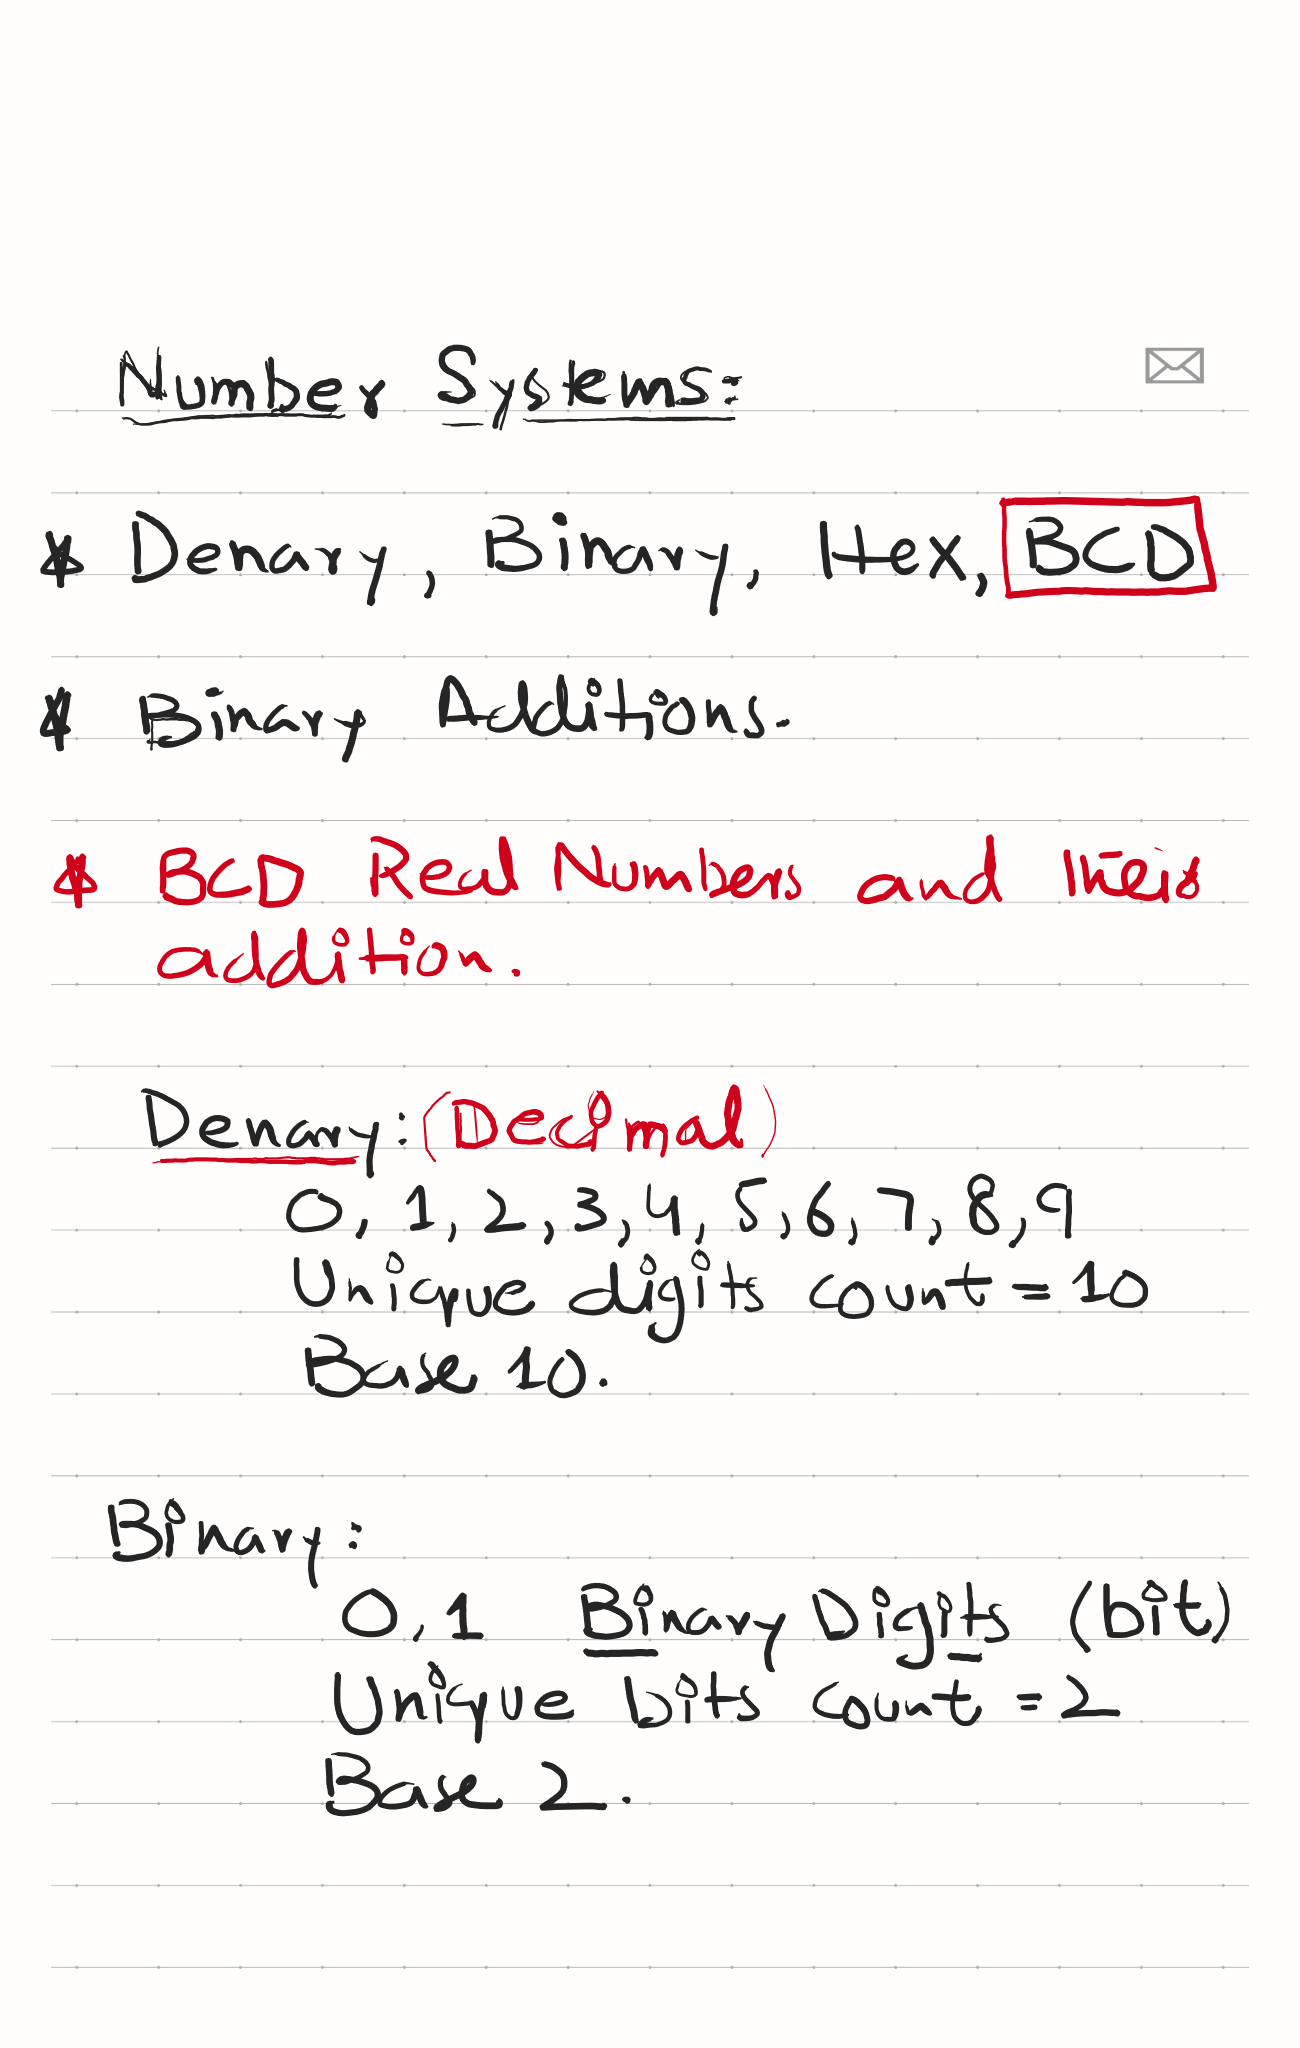 Number Systems:
* Denary, Binary, Hex, BCD
* Binary Additions.
* BCD Real Numbers and their
addition.
Denary: (Decimal)
0, 1, 2, 3, 4, 5, 6, 7, 8, 9
Unique digits count = 10
Base 10.
Binary:
0, 1 Binary Digits (bit)
Unique bits count = 2
Base 2.